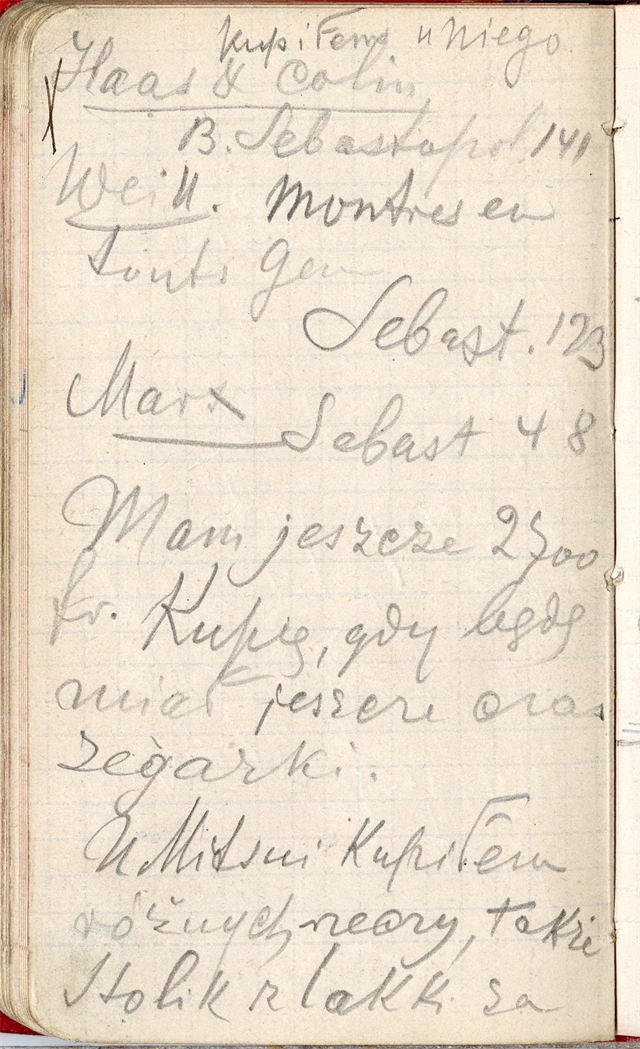 Kupiłem u niego
Haas & Colin
B. Sebastopol 141
Weill. Montres en
touts Gen
Sebast. 123
Marx
Sebast 48
Mam jeszcze 2700
fr. Kupię, gdy będę
miał jeszcze czas
zegarki.
U Mitsui Kupiłem
różnych rzeczy, także
Stolik z laki za